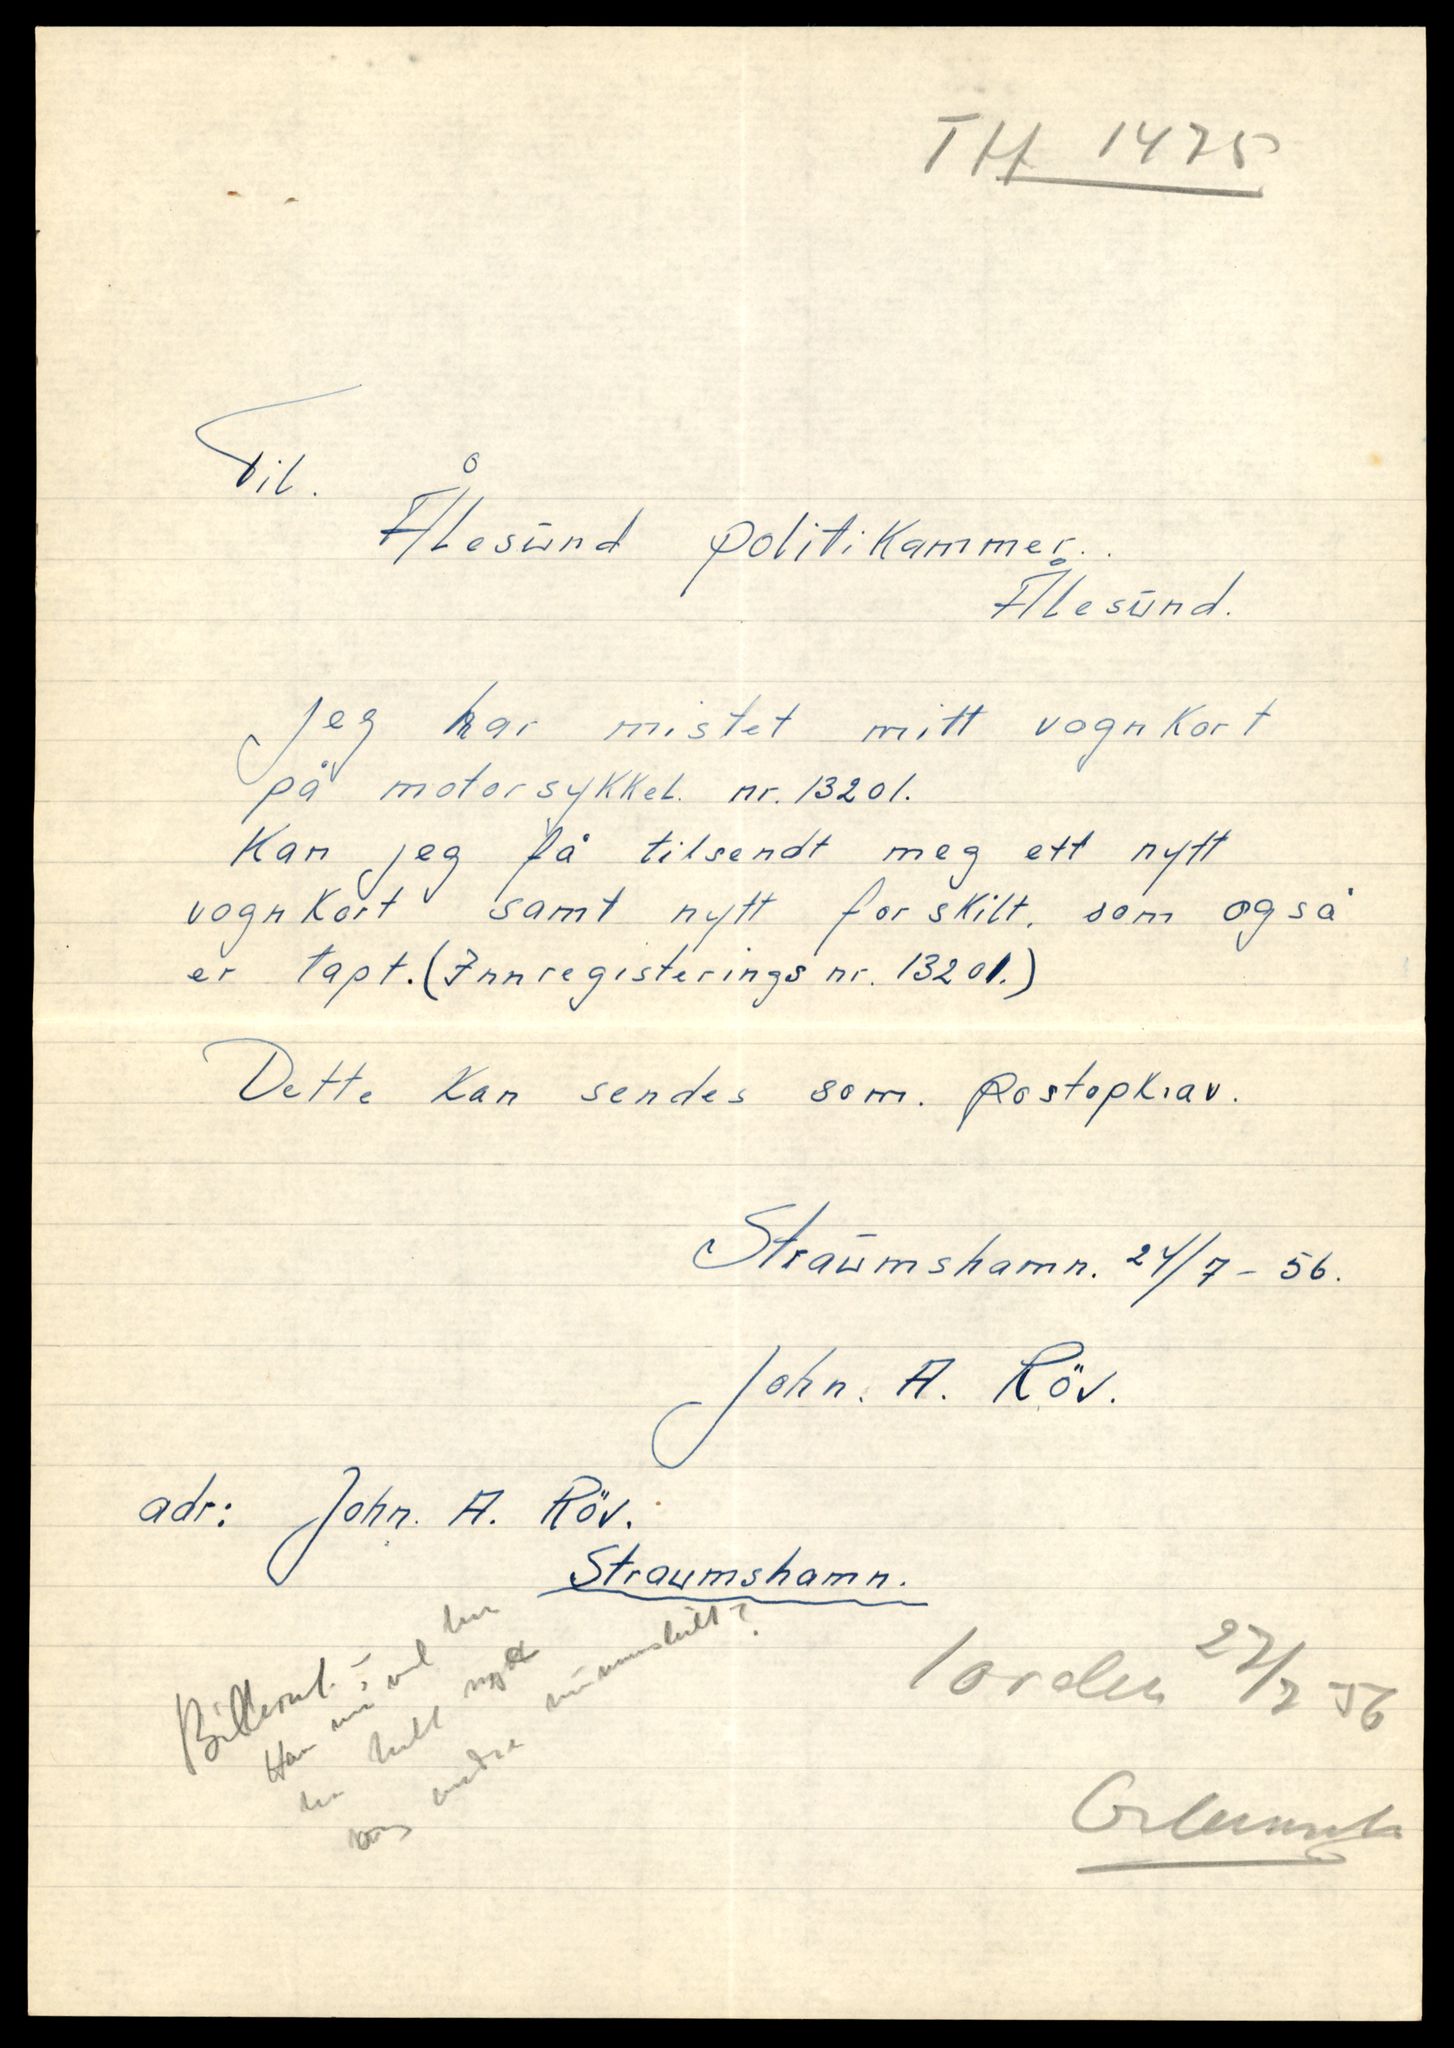 TH 1475
Til.
Ålesund politikammer.
Ålesund.
Jeg har mistet mitt vognkort
på motorsykkel. nr. 13201.
Kan jeg få tilsendt meg ett nytt
vognkort samt nytt forskilt. som også
er tapt. (Innregisterings nr. 13201.)
Dette kan sendes som. Postopkrav.
Straumshamn. 24/7 - 56.
John. A. Röv.
adr: John. A. Röv.
Straumshamn.
27/7 56
Han
nytt